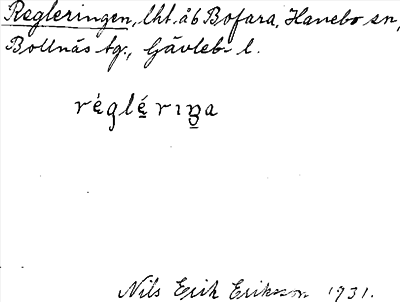 Regleringen, lht. å b Bofara, Hanebo sn,
Bollnäs tg., Gävleb. l.
règlé̱rıŋa
Nils Erik Eriksson 1931.